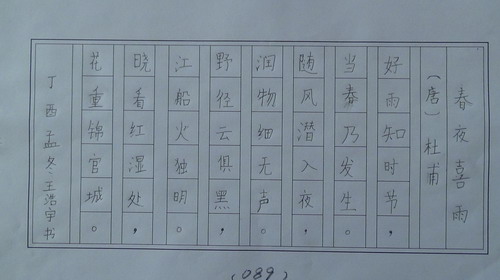 春夜喜雨
（唐）杜甫
好雨知时节，
当春乃发生。
随风潜入夜，
润物细无声。
野径云俱黑，
江船火独明。
晓看红湿处，
花重锦官城。
丁酉孟冬王浩宇书
（089）